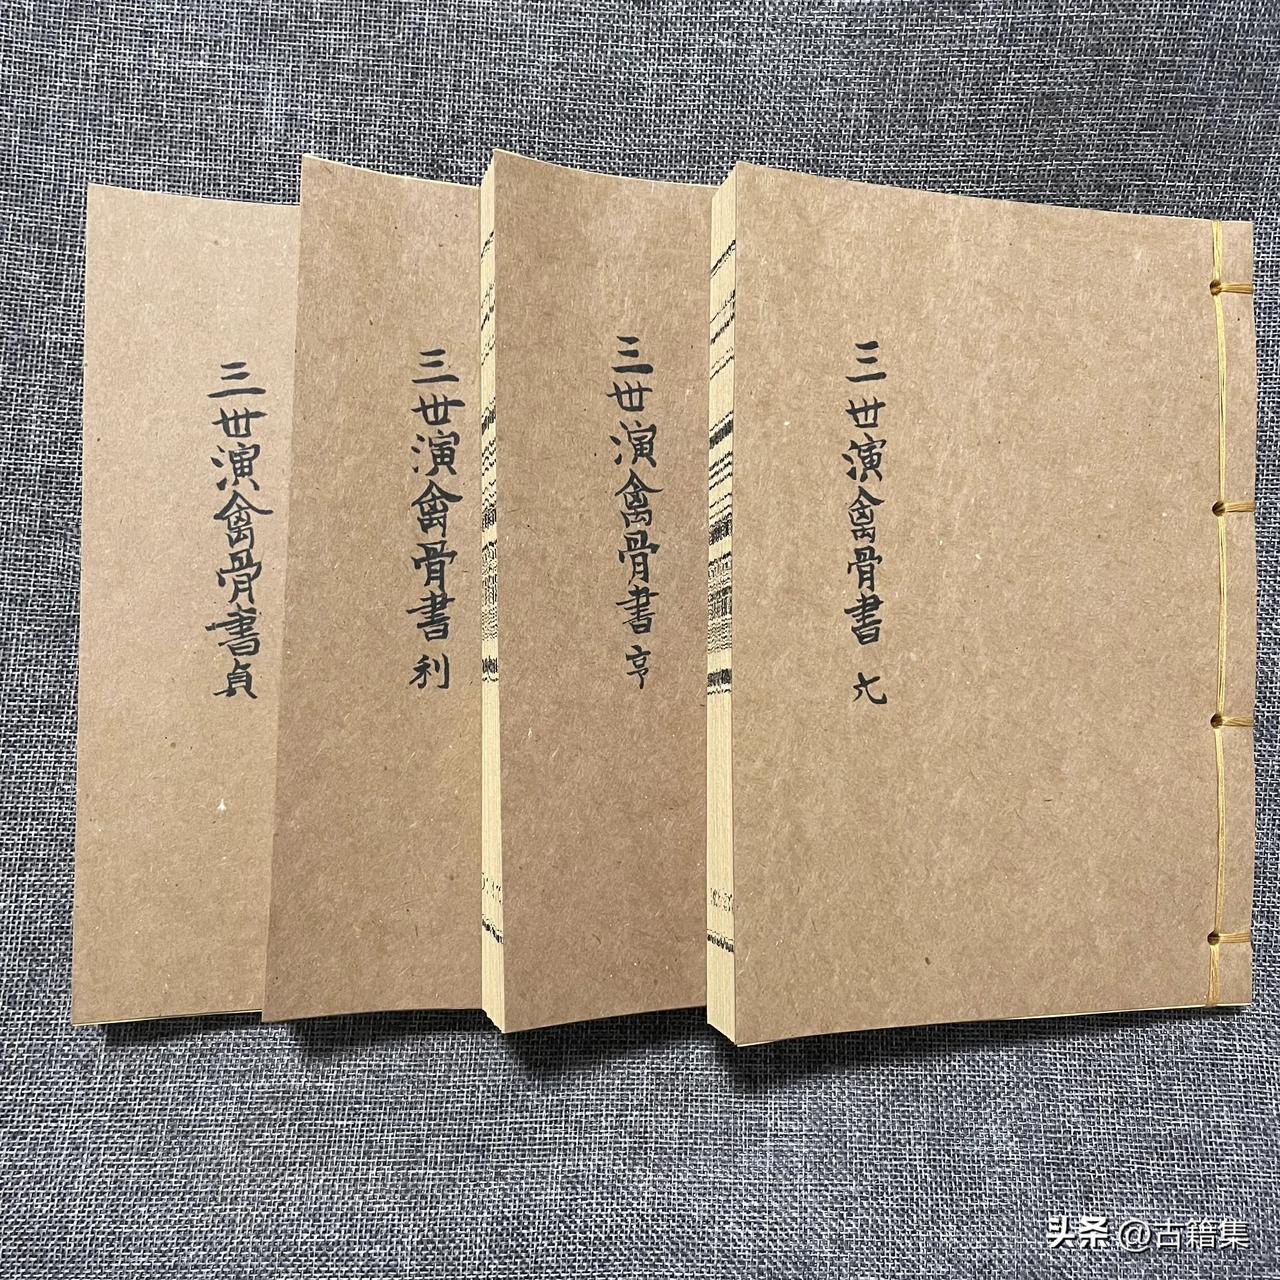 三世演禽骨書 元
三世演禽骨書 亨
三世演禽骨書 利
三世演禽骨書 貞
头条 @古籍集